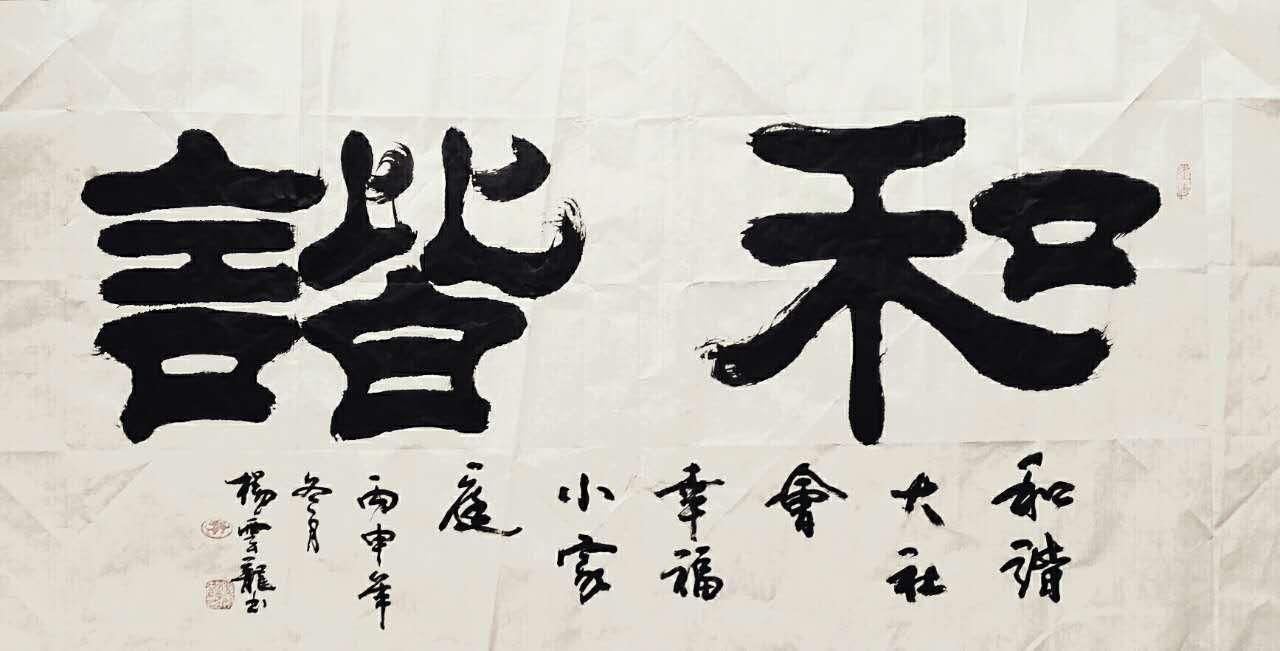 和諧
和諧
大社
會
幸福
小家
庭
丙申年
冬月
楊雲龍书